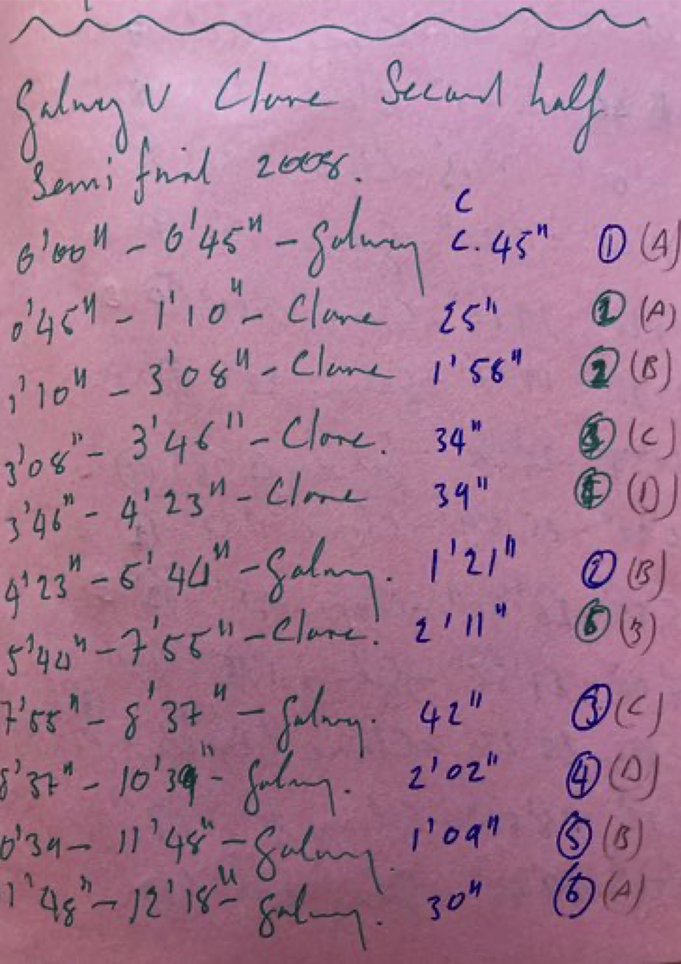 Galway V Clare Second half
Semi final 2008.
C
0'00" - 0'45" - Galway C. 45" ① (A)
0'45" - 1'10" - Clare 25" ① (A)
1'10" - 3'08" - Clare 1'58" ② (B)
3'08" - 3'46" - Clare. 34" ③ (C)
3'46" - 4'23" - Clare 39" ④ (D)
4'23" - 5'44" - Galway. 1'21" ② (B)
5'44" - 7'55" - Clare. 2'11" ⑤ (B)
7'55" - 8'37" - Galway. 42" ③ (C)
8'37" - 10'39" - Galway. 2'02" ④ (D)
0'39 - 11'48" - Galway. 1'09" ⑤ (B)
1'48" - 12'18" - Galway. 30" ⑥ (A)